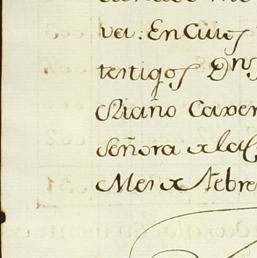 va: En Cuios
testigos Dns
Riaño Caver
Señora xla C
Mes x Febre